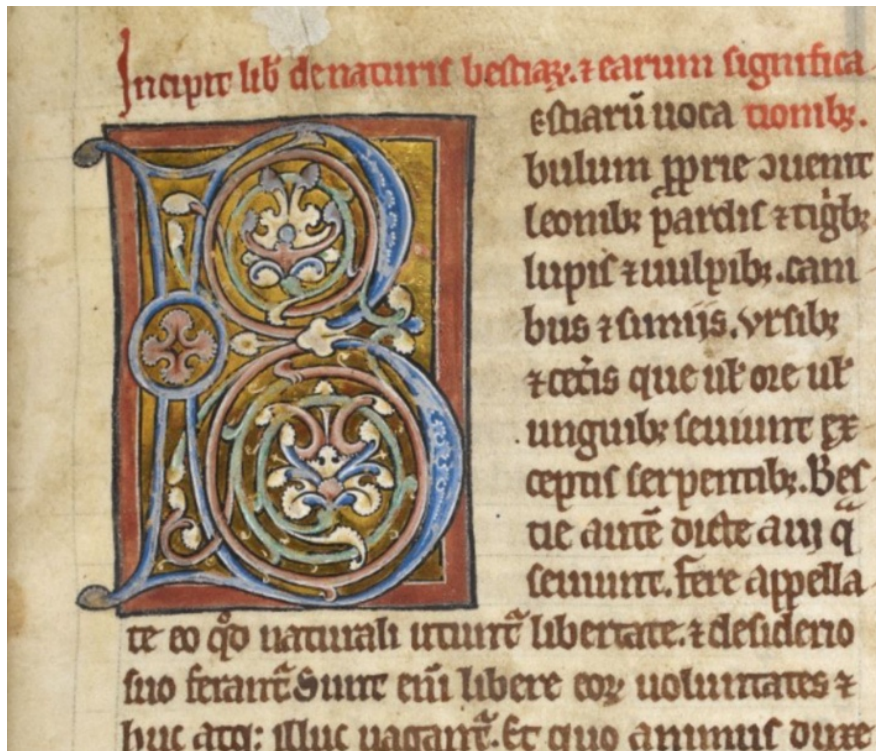 Incipit lib̄ de naturis bestiaꝝ. ⁊ earum significa
estiarū uoca tionibꝫ.
bulum ꝓprie ↄuenit
leonibꝫ pardis ⁊ tigͥbꝫ
lupis ⁊ uulpibꝫ. cani
bus ⁊ simiis. vrsibꝫ
⁊ cet̄is que ul̵ ore ul̵
unguibꝫ seuiunt ex
ceptis serpentibꝫ. Bes
tie autē dicte a ui q̄
seuiunt. fere appella
te eo qͦd naturali utunt᷑ libertate. ⁊ desiderio
suo ferant᷑ Sunt eni̅ libere eoꝝ uoluntates ⁊
huc atqꝫ illuc uagant᷑. Et quo animus duxe